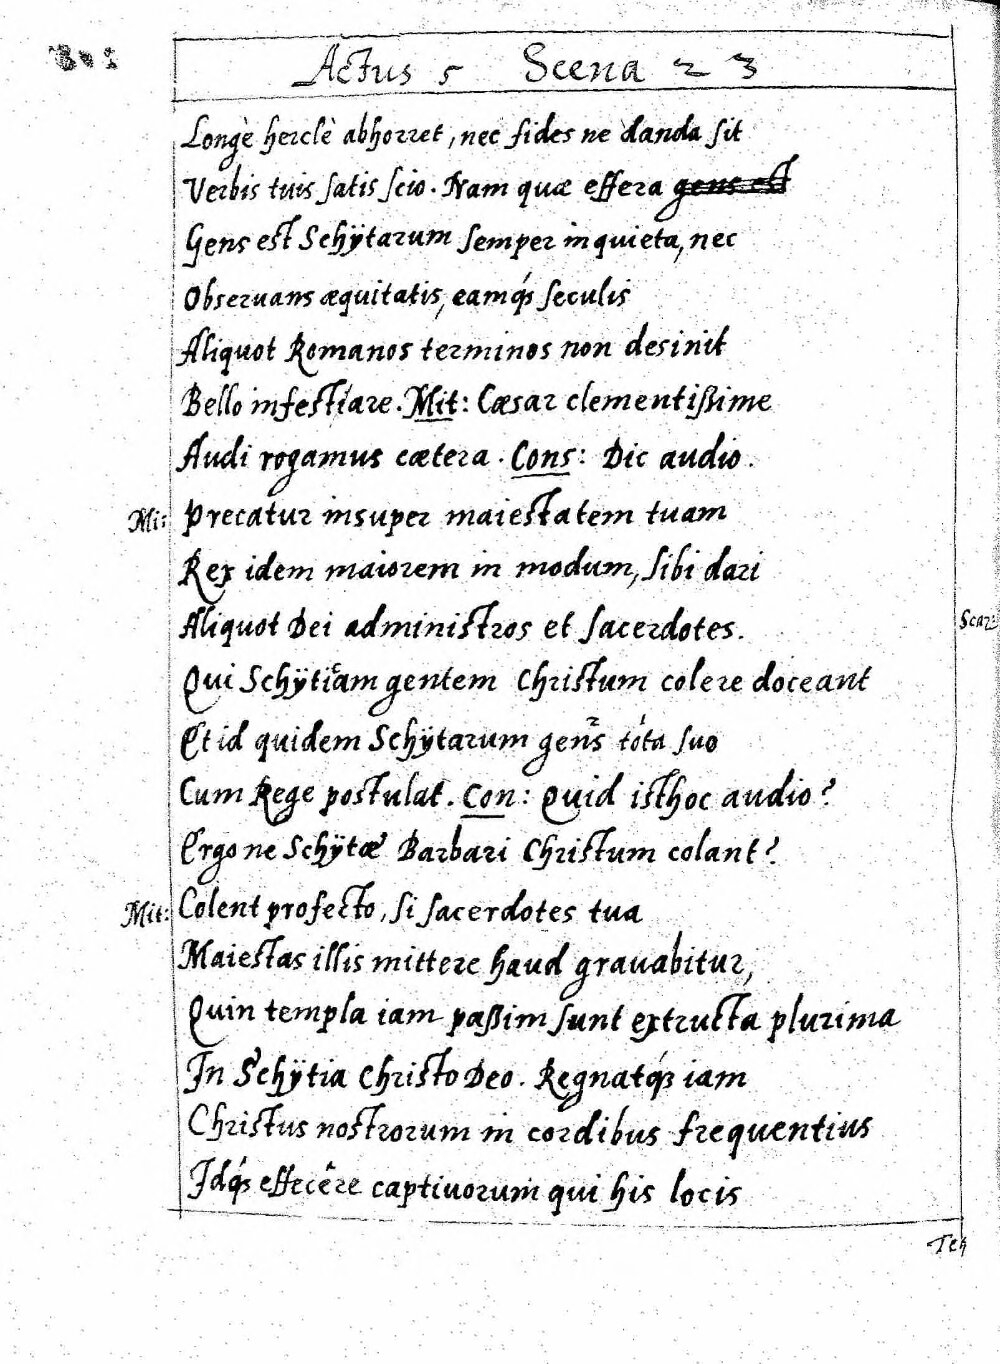 Actus 5 Scena 2 3
Longè herclè abhorret, nec fides ne danda sit
Verbis tuis satis scio. Nam quæ effera gens est
Gens est Schÿtarum semper inquieta, nec
Obseruans æquitatis, eamq́ꝫ seculis
Aliquot Romanos terminos non desinit
Bello infestiare. Mit: Cæsar clementißime
Audi rogamus cætera. Cons: Dic audio.
Mi: Precatur insuper maiestatem tuam
Rex idem maiorem in modum, sibi dari
Aliquot Dei administros et sacerdotes.
Scar:
Qui Schÿticam gentem Christum colere doceant
Et id quidem Schÿtarum gens tóta suo
Cum Rege postulat. Con: Quid isthoc audio?
Ergo ne Schÿtæ Barbari Christum colant?
Mit: Colent profecto, si sacerdotes tua
Maiestas illis mittere haud grauabitur,
Quin templa iam paßim sunt extructa plurima
In Schÿtia Christo Deo. Regnatq́ꝫ iam
Christus nostrorum in cordibus frequentius
Idq́ꝫ effecêre captiuorum qui his locis